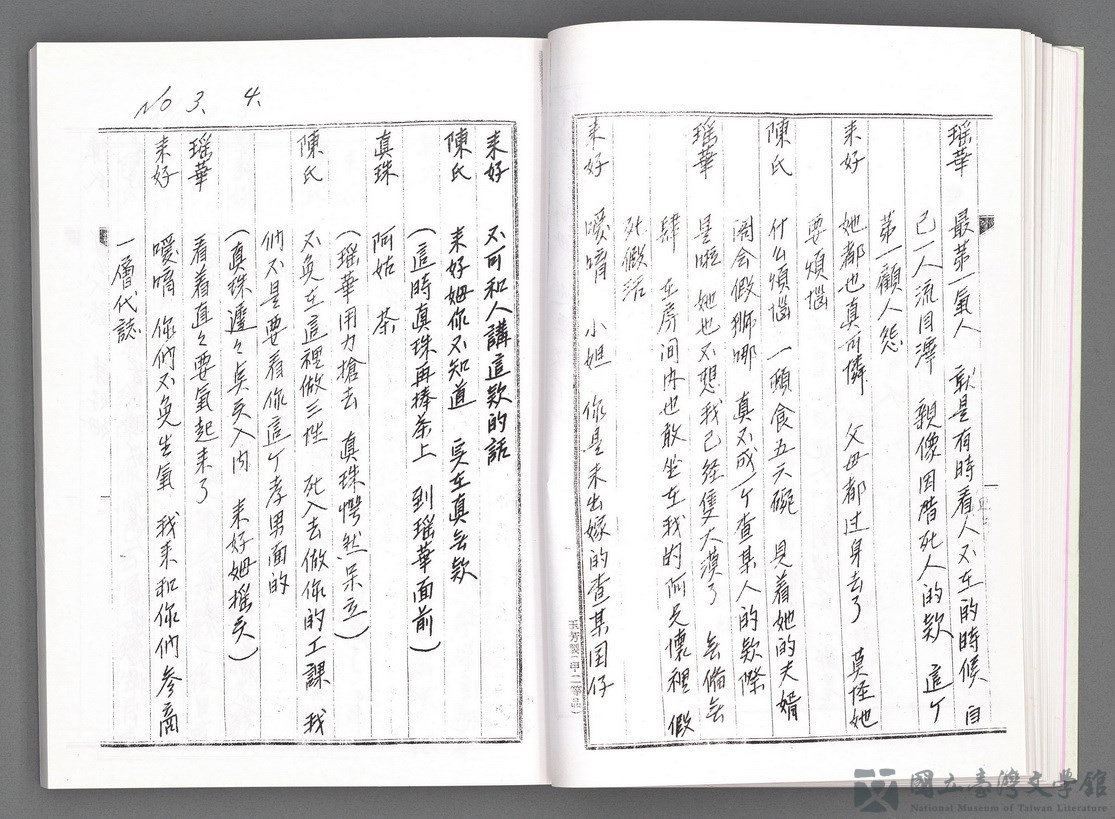 瑶華 最第一氣人 就是有時看人不在的時候 自
己一人流目滓 親像因階死人的款 這个
第一顧人怨
来好 她都也真可憐 父母都过身去了 莫怪她
要煩惱
陳氏 什么煩惱 一頓食五六碗 見着她的夫婿
闊会假獅哪 真不成一个查某人的款際
瑶華 是啦 她也不想我已經隻大漢了 無倫無
肆 在房间内也敢坐在我的阿兄懷裡 假
死假活
来好 噯唷 小姐 你是未出嫁的查某囝仔
玉芳製(甲·二等品)
No 3. 4.
来好 不可和人講這款的話
陳氏 来好姆你不知道 实在真無款
(這時真珠再捧茶上 到瑶華面前)
真珠 阿姑 茶
(瑶華用力搶去 真珠愕然呆立)
陳氏 不免在這裡做三性 死入去做你的工課 我
们不是要看你這个孝男面的
(真珠遭々貞亥入内 来好姆摇亥)
瑶華 看着直々要氣起来了
来好 噯唷 你们不免生氣 我来和你们参商
一層代誌
國立臺灣文學館
National Museum of Taiwan Literature